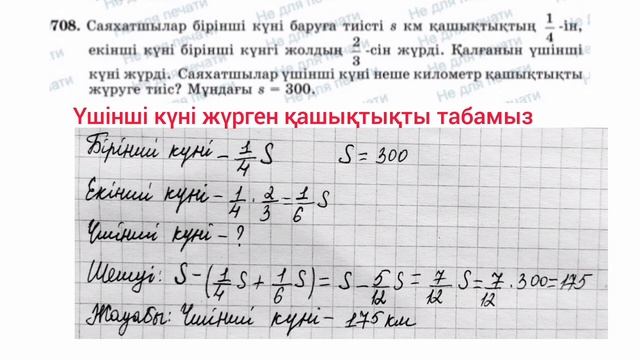 708. Саяхатшылар бірінші күні баруға тиісті s км қашықтықтың 1/4 -ін,
екінші күні бірінші күнгі жолдың 2/3 -сін жүрді. Қалғанын үшінші
күні жүрді. Саяхатшылар үшінші күні неше километр қашықтықты
жүруге тиіс? Мұндағы s = 300.
Үшінші күні жүрген қашықтықты табамыз
Бірінші күні – 1/4 S S = 300
Екінші күні – 1/4 · 2/3 = 1/6 S
Үшінші күні – ?
Шешуі: S – (1/4 S + 1/6 S) = S – 5/12 S = 7/12 S = 7/12 · 300 = 175
Жауабы: Үшінші күні – 175 км